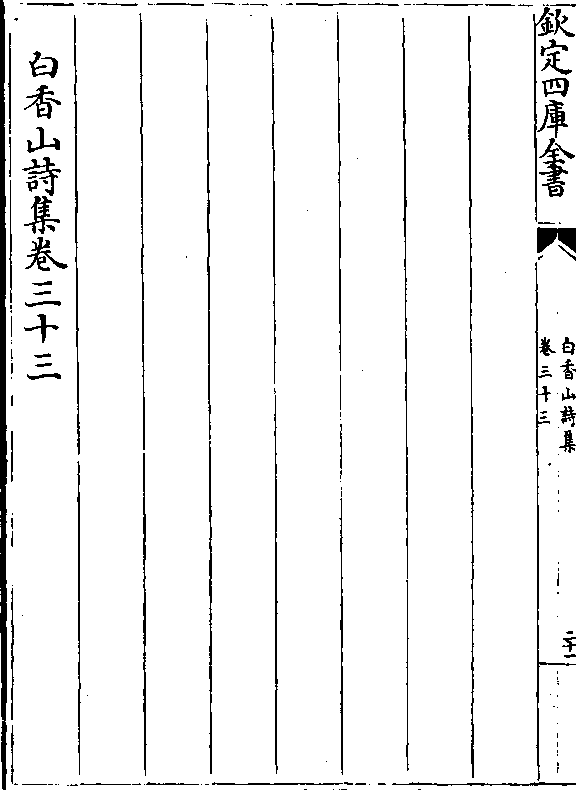 欽定四庫全書
白香山詩集
卷三十三
二十一
白香山詩集卷三十三